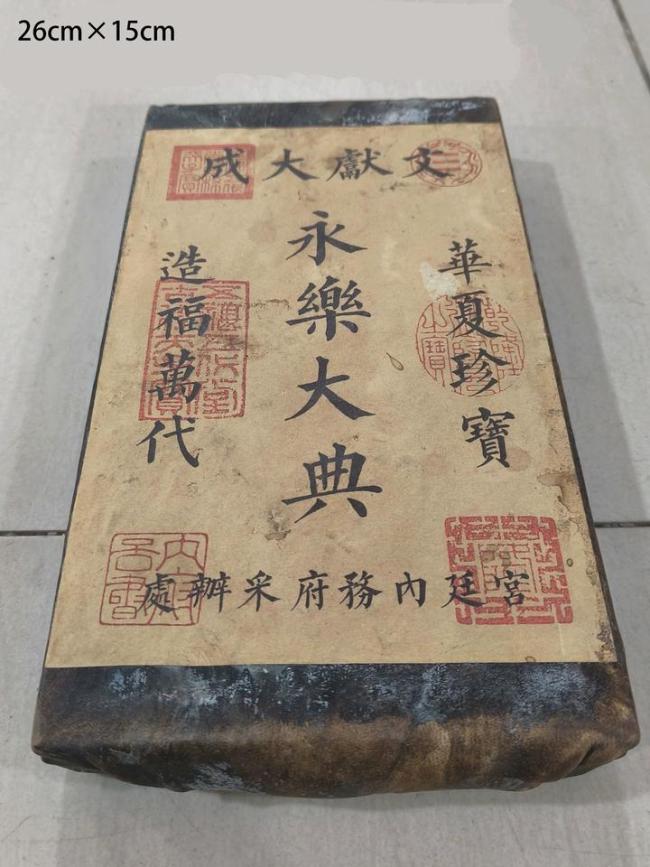 26cm×15cm
文獻大成
華夏珍寶
永樂大典
造福萬代
宮廷內務府采辦處